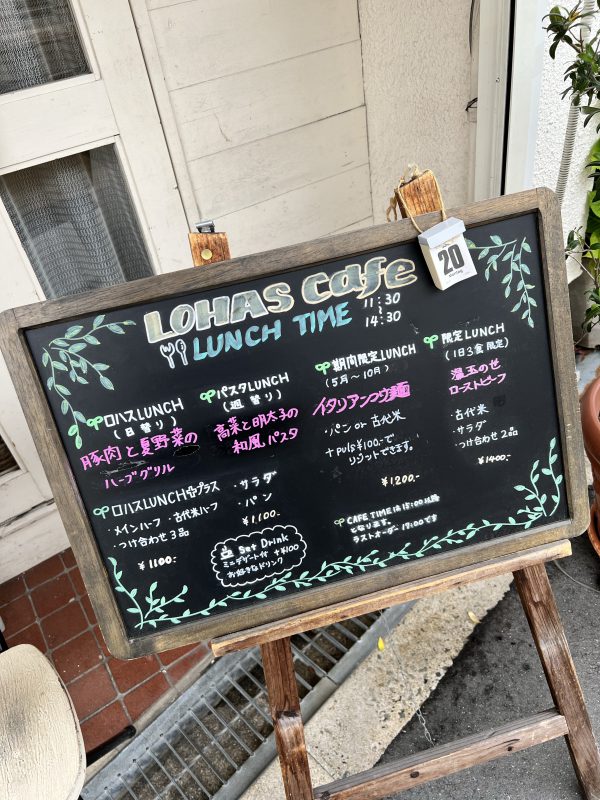 LOHAS cafe
LUNCH TIME
11:30
~
14:30
20
ロハスLUNCH
(日替り)
豚肉と夏野菜の
ハーブグリル
ロハスLUNCHプラス
・メインハーフ・古代米ハーフ
・つけ合わせ3品
¥1100-
パスタLUNCH
(週替り)
高菜と明太子の
和風パスタ
・サラダ
・パン
¥1.100-
Set Drink
ミニデザート付 +¥400
お好きなドリンク
期間限定LUNCH
(5月〜10月)
イタリアン
・パン or 古代米
+puls¥100-で
リゾットできます。
¥1.200-
CAFE TIMEは15:00以降
となります。
ラストオーダー17:00です
限定LUNCH
(1日3食限定)
温玉のせ
ローストビーフ
・古代米
・サラダ
・つけ合わせ2品
¥1400-